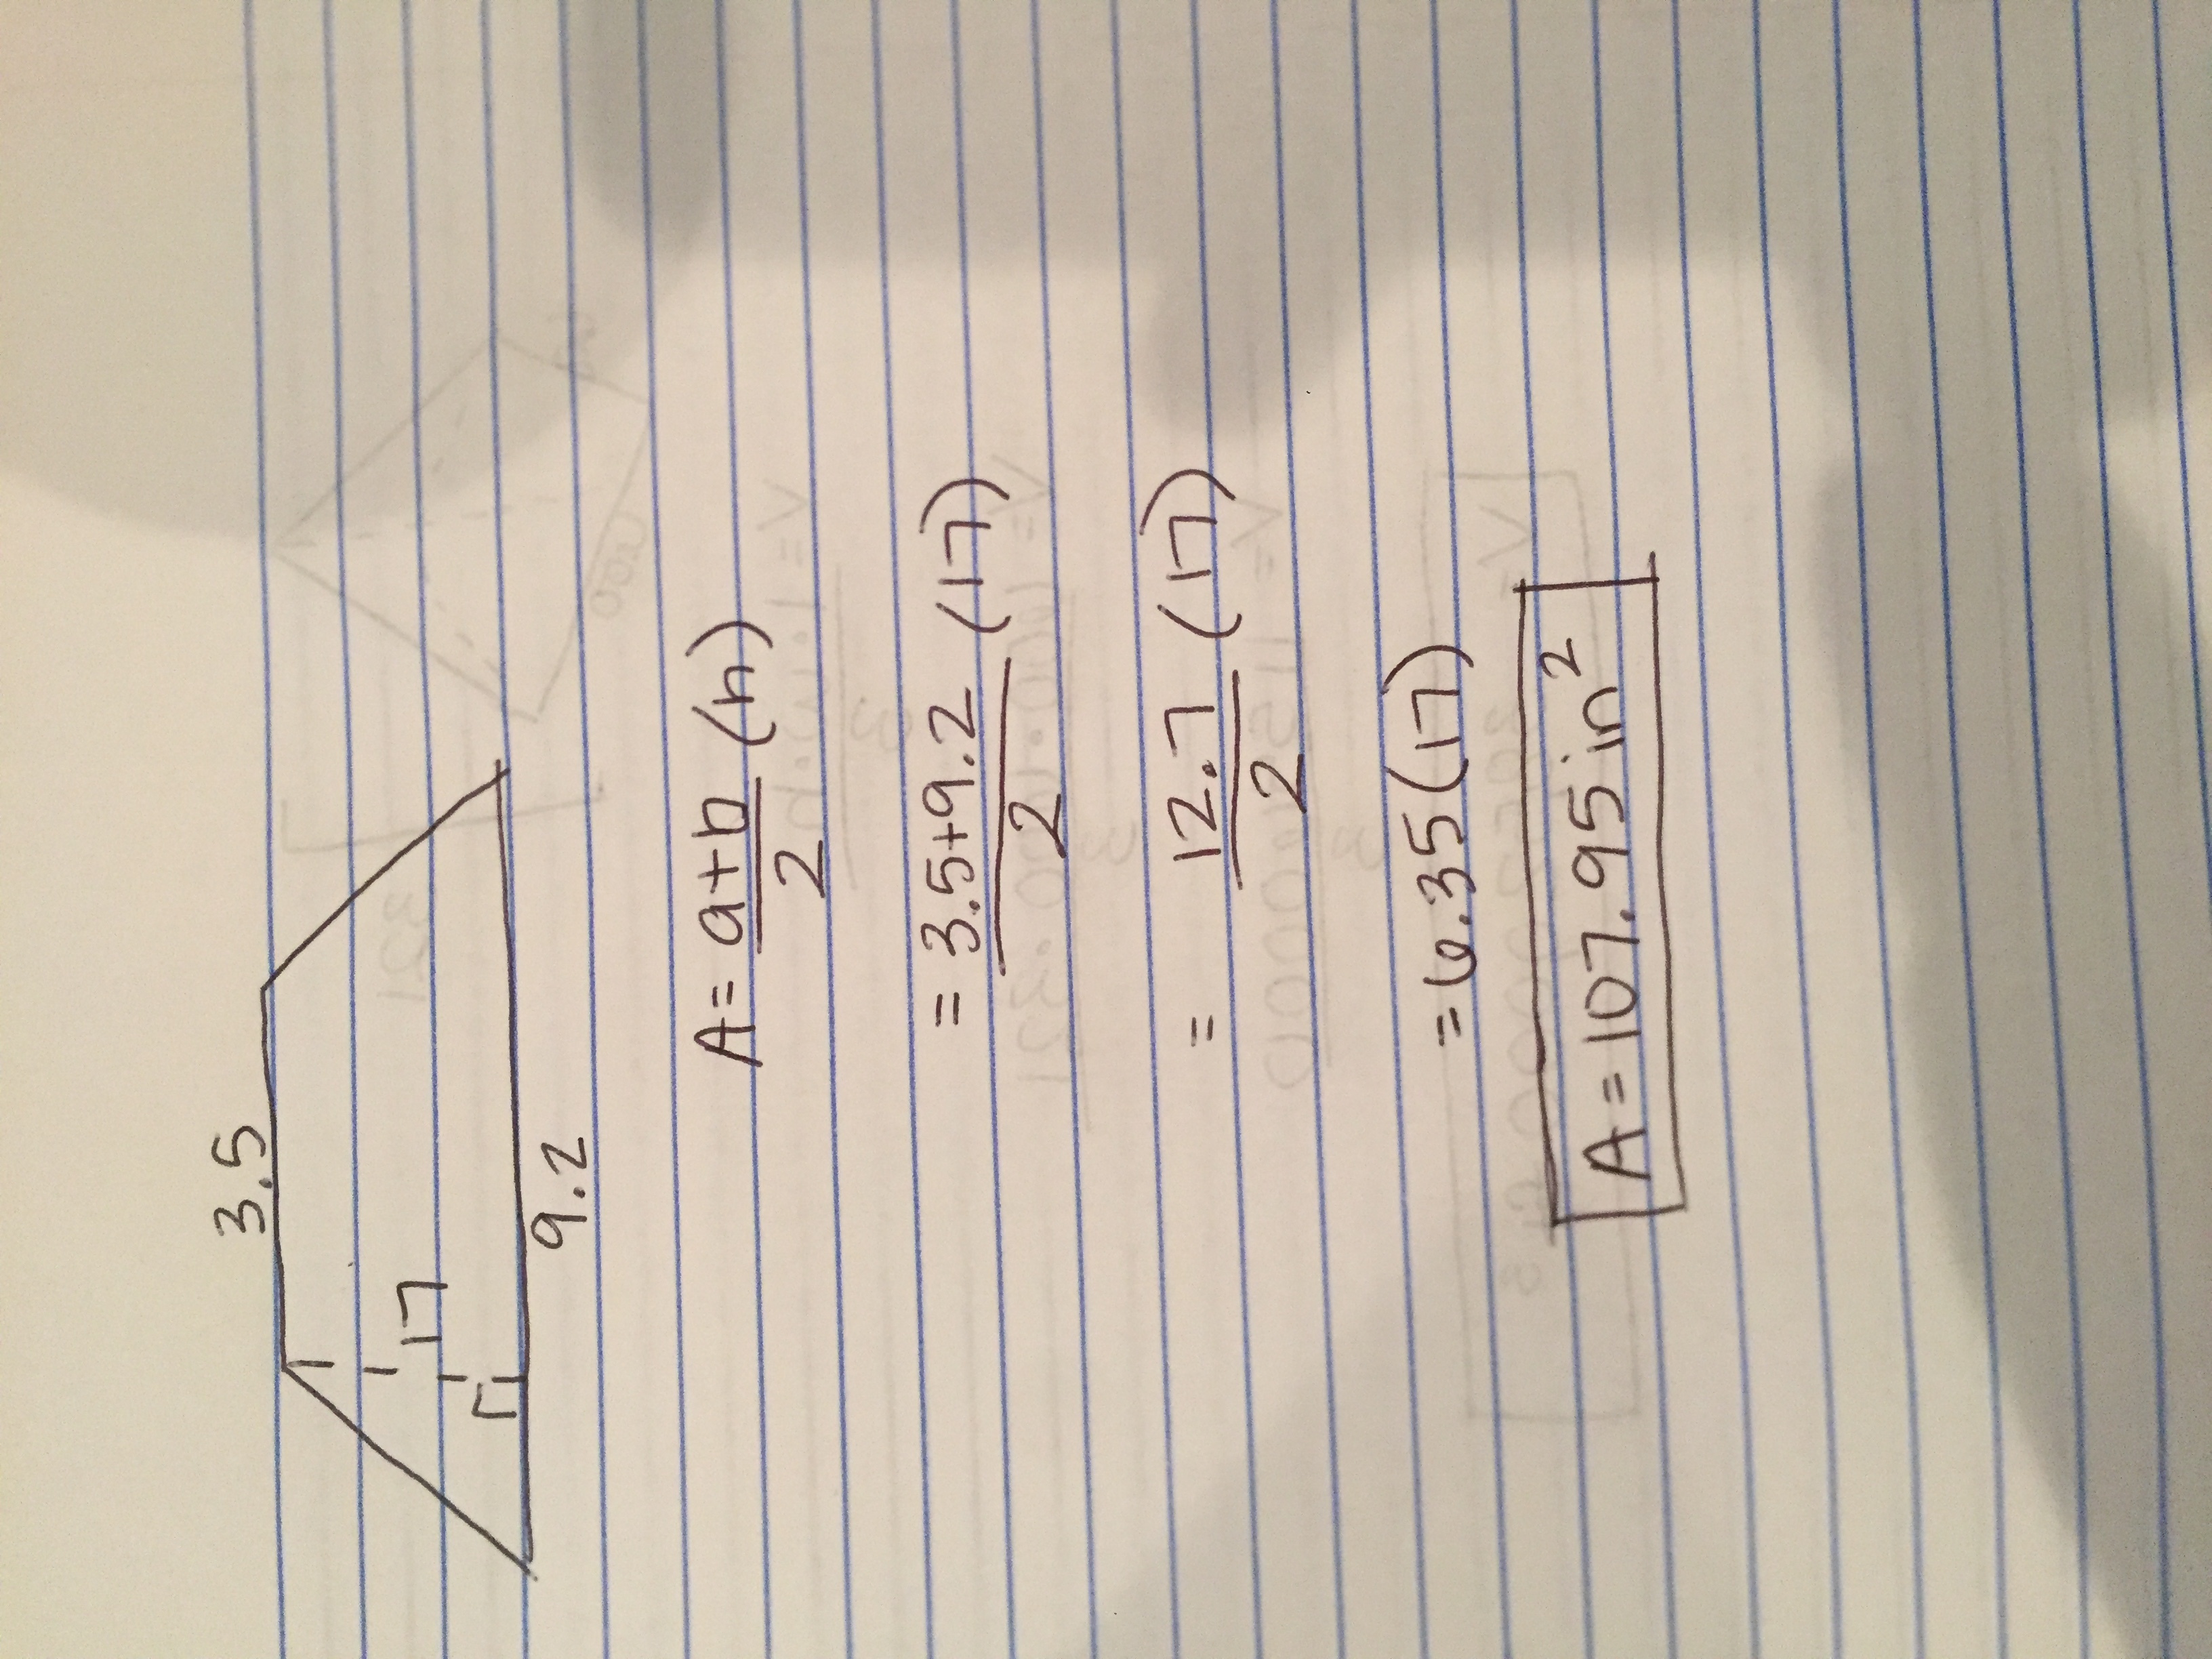 3.5
17
9.2
A = a+b/2 (h)
= 3.5+9.2/2 (17)
= 12.7/2 (17)
= 6.35(17)
A = 107.95 in²